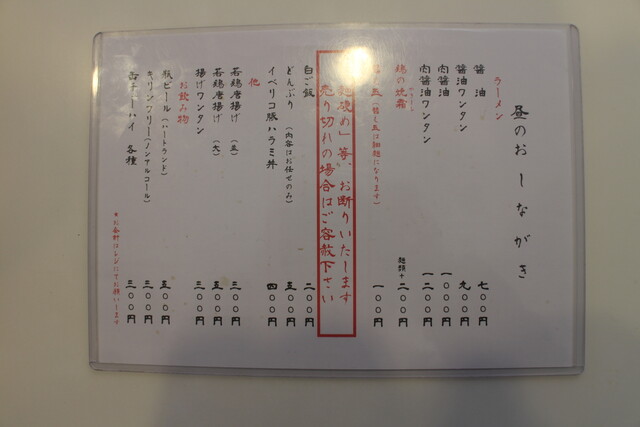 昼のおしながき
ラーメン
醤油 七〇〇円
醤油ワンタン 九〇〇円
肉醤油 一〇〇〇円
肉醤油ワンタン 一二〇〇円
鶏の焼霜 麺類+ 二〇〇円
玉 (替し玉は細麺になります) 一〇〇円
麺硬め」等、お断りいたします
売り切れの場合はご容赦下さい
白ご飯 二〇〇円
どんぶり (内容はお任せのみ) 五〇〇円
イベリコ豚ハラミ丼 四〇〇円
他
若鶏唐揚げ (五) 三〇〇円
若鶏唐揚げ (大) 五〇〇円
揚げワンタン 三〇〇円
お飲み物
瓶ビール (ハートランド) 五〇〇円
キリンフリー (ノンアルコール) 三〇〇円
缶チューハイ 各種 三〇〇円
*お会計はレジにてお願いします